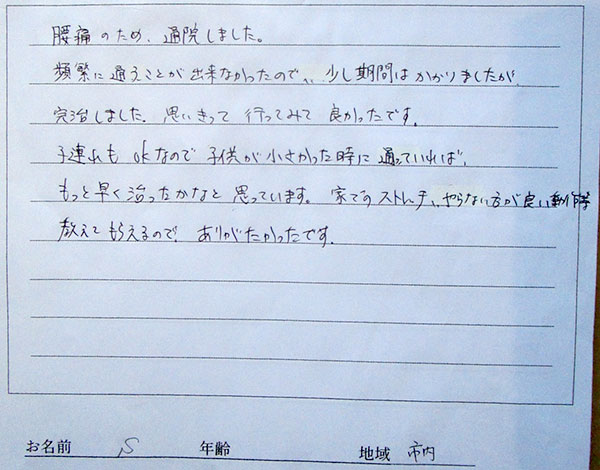 腰痛のため、通院しました。
頻繁に通うことが出来なかったので、少し期間はかかりましたが、
完治しました。思いきって行ってみて良かったです。
子連れもokなので子供が小さかった時に通っていれば、
もっと早く治ったかなと思っています。家でのストレッチ、やらない方が良い動作等
教えてもらえるので、ありがたかったです。
お名前 S 年齢 地域 市内